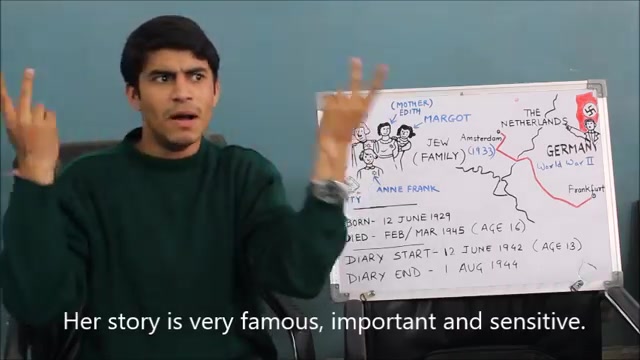 (MOTHER)
EDITH
MARGOT
THE
NETHERLANDS
Amsterdam
JEW
(FAMILY)
(1933)
GERMANY
World War II
Frankfurt
ANNE FRANK
BORN- 12 JUNE 1929
DIED- FEB/MAR 1945 (AGE 16)
DIARY START- 12 JUNE 1942 (AGE 13)
DIARY END - 1 AUG 1944
Her story is very famous, important and sensitive.